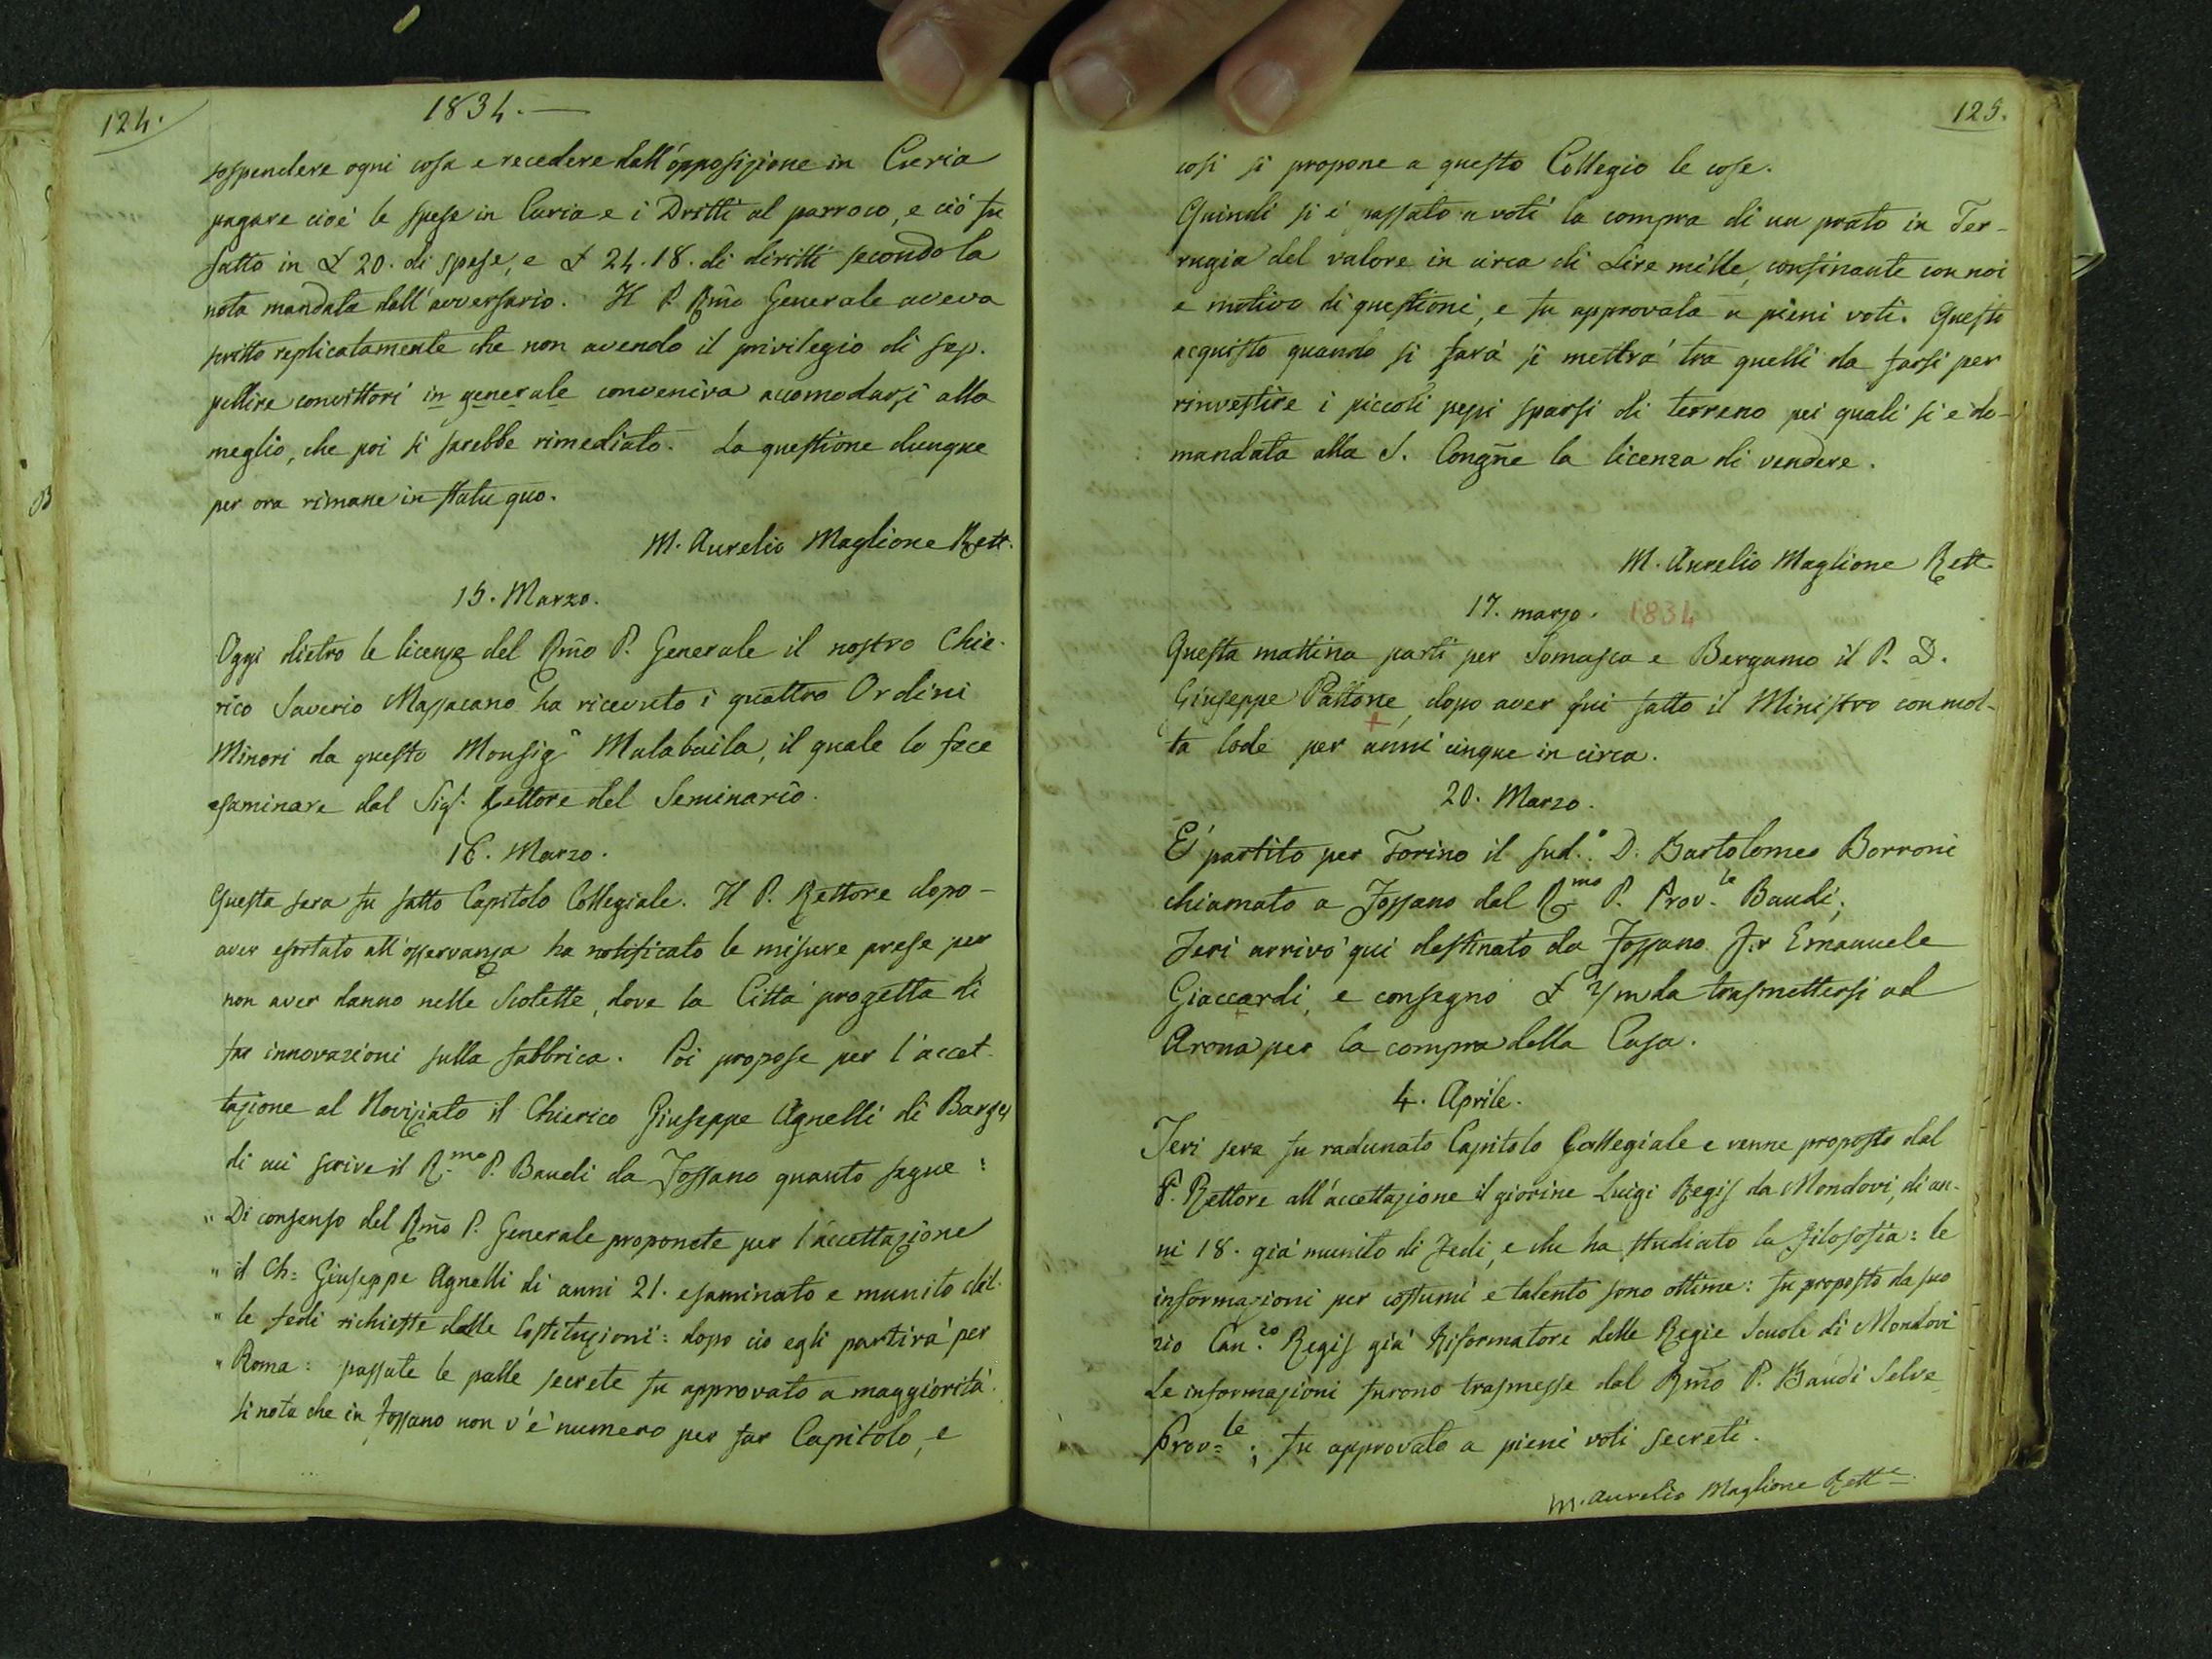 124.
1834. —
sospendere ogni cosa e recedere dall'opposizione in Curia
pagare cioè le spese in Curia e i Dritti al parroco, e ciò fu
fatto in £ 20. di spese, e £ 24.18. di diritti secondo la
nota mandata dall'avversario. Il P. Rm̃o Generale aveva
scritto replicatamente che non avendo il privilegio di sep.
pellire convittori in generale conveniva accomodarsi alla
meglio, che poi si sarebbe rimediato. La questione dunque
per ora rimane in statu quo.
M. Aurelio Maglione Rett.
15. Marzo.
Oggi dietro le licenze del Rm̃o P. Generale il nostro Chie-
rico Saverio Massacano ha ricevuto i quattro Ordini
Minori da questo Monsigr Malabaila, il quale lo fece
esaminare dal Sigr. Rettore del Seminario.
16. Marzo.
Questa sera fu fatto Capitolo Collegiale. Il P. Rettore dopo-
aver esortato all'osservanza ha notificato le misure prese per
non aver danno nelle Scolette, dove la Città progetta di
far innovazioni sulla fabbrica. Poi propose per l'accet-
tazione al Noviziato il Chierico Giuseppe Agnelli di Barge
di cui scrive il R.mo P. Baudi da Fossano quanto segue:
" Di consenso del Rm̃o P. Generale proponete per l'accettazione
" il Ch: Giuseppe Agnelli di anni 21. esaminato e munito del-
" le fedi richieste dalle Costituzioni: dopo ciò egli partirà per
" Roma: passate le palle secrete fu approvato a maggiorità.
si nota che in Fossano non v'è numero per far Capitolo, e
125.
così si propone a questo Collegio le cose.
Quindi si è passato a voti la compra di un prato in Ter-
rugia del valore in circa di Lire mille, confinante con noi
e motivo di questioni, e fu approvata a pieni voti. Questo
acquisto quando si farà si mettrà tra quelli da farsi per
rinvestire i piccoli pezzi sparsi di terreno pei quali si è do-
mandata alla S. Congñe la licenza di vendere.
M. Aurelio Maglione Rett.
17. marzo. 1834
Questa mattina partì per Somasca e Bergamo il P. D.
Giuseppe Pattone, dopo aver qui fatto il Ministro con mol-
ta lode per anni cinque in circa.
20. Marzo.
E' partito per Torino il sud.o D. Bartolomeo Borroni
chiamato a Fossano dal R.mo P. Prov.le Baudi;
Jeri arrivò qui destinato da Fossano Fr Emanuele
Giaccardi, e consegnò £ 2/m da trasmettersi ad
Arona per la compra della Casa.
4. Aprile.
Jeri sera fu radunato Capitolo Collegiale e venne proposto dal
P. Rettore all'accettazione il giovine Luigi Regis da Mondovì, di an-
ni 18. già munito di Fedi, e che ha studiato la filosofia: le
informazioni per costumi e talento sono ottime: fu proposto da suo
zio Can.co Regis già Riformatore delle Regie Scuole di Mondovì
Le informazioni furono trasmesse dal Rm̃o P. Baudi Selve
Prov=le; fu approvato a pieni voti secreti.
M. Aurelio Maglione Rett.e